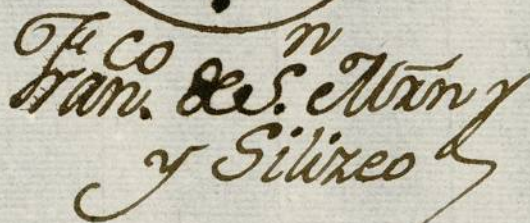 Fran.co de S.n Mrn y
y Silizeo